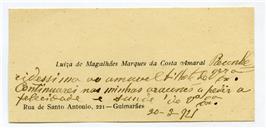 Luiza de Magalhães Marques da Costa Amaral
ao amavel bilhete de
Continuarei nas minhas orações a pedir a
felicidade e saude de
Rua de Santo Antonio, 221—Guimarães
30-3-921